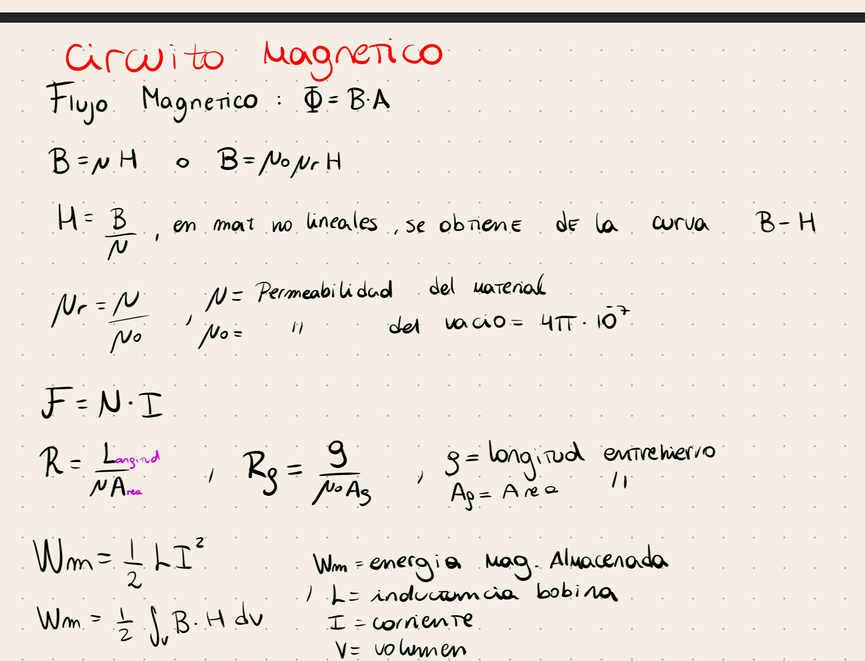 Circuito Magnetico
Flujo Magnetico : Φ = B·A
B = μ H o B = μo μr H
H = B/μ , en mat no lineales , se obtiene de la curva B-H
μr = μ/μo , μ = Permeabilidad del material
μo = " del vacio = 4π · 10^-7
F = N · I
R = Longitud/μ Area , Rg = g/μo Ag , g = longitud entrehierro
Ag = Area "
Wm = 1/2 L I² Wm = energia mag. Almacenada
, L = inductancia bobina
Wm = 1/2 ∫v B · H dv I = corriente
V = volumen